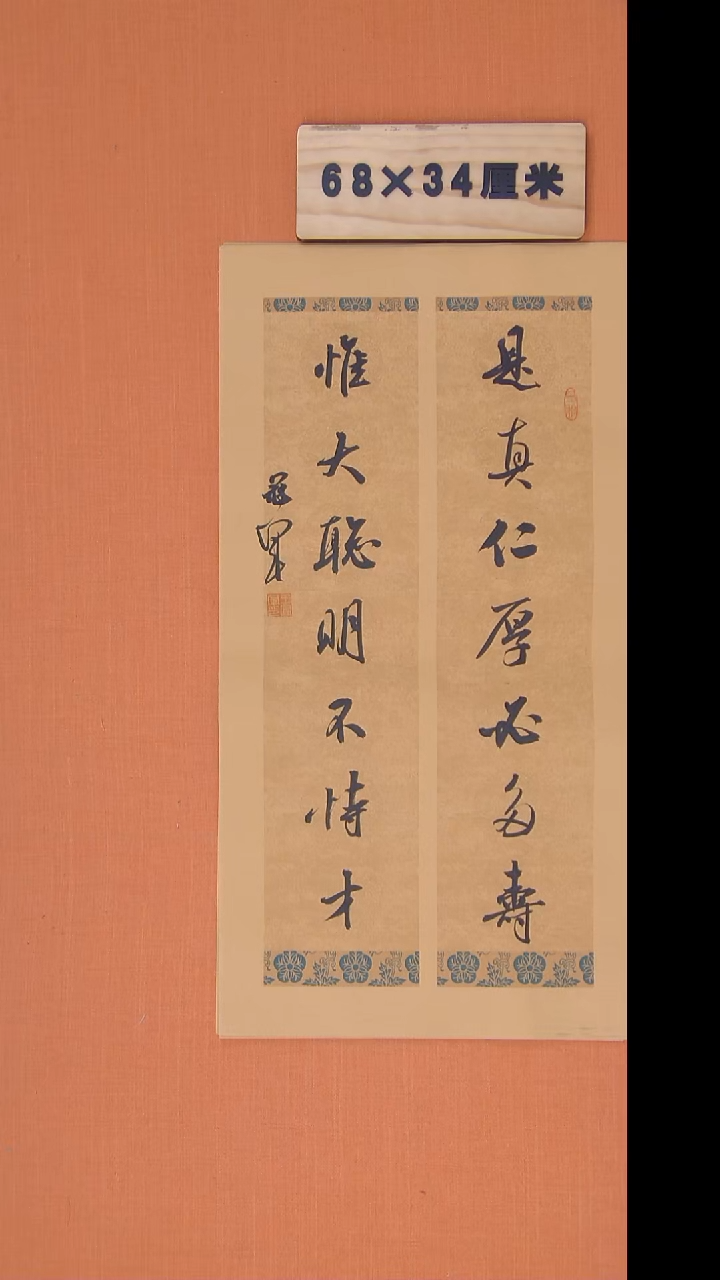 68×34厘米
是真仁厚必多寿
惟大聪明不恃才